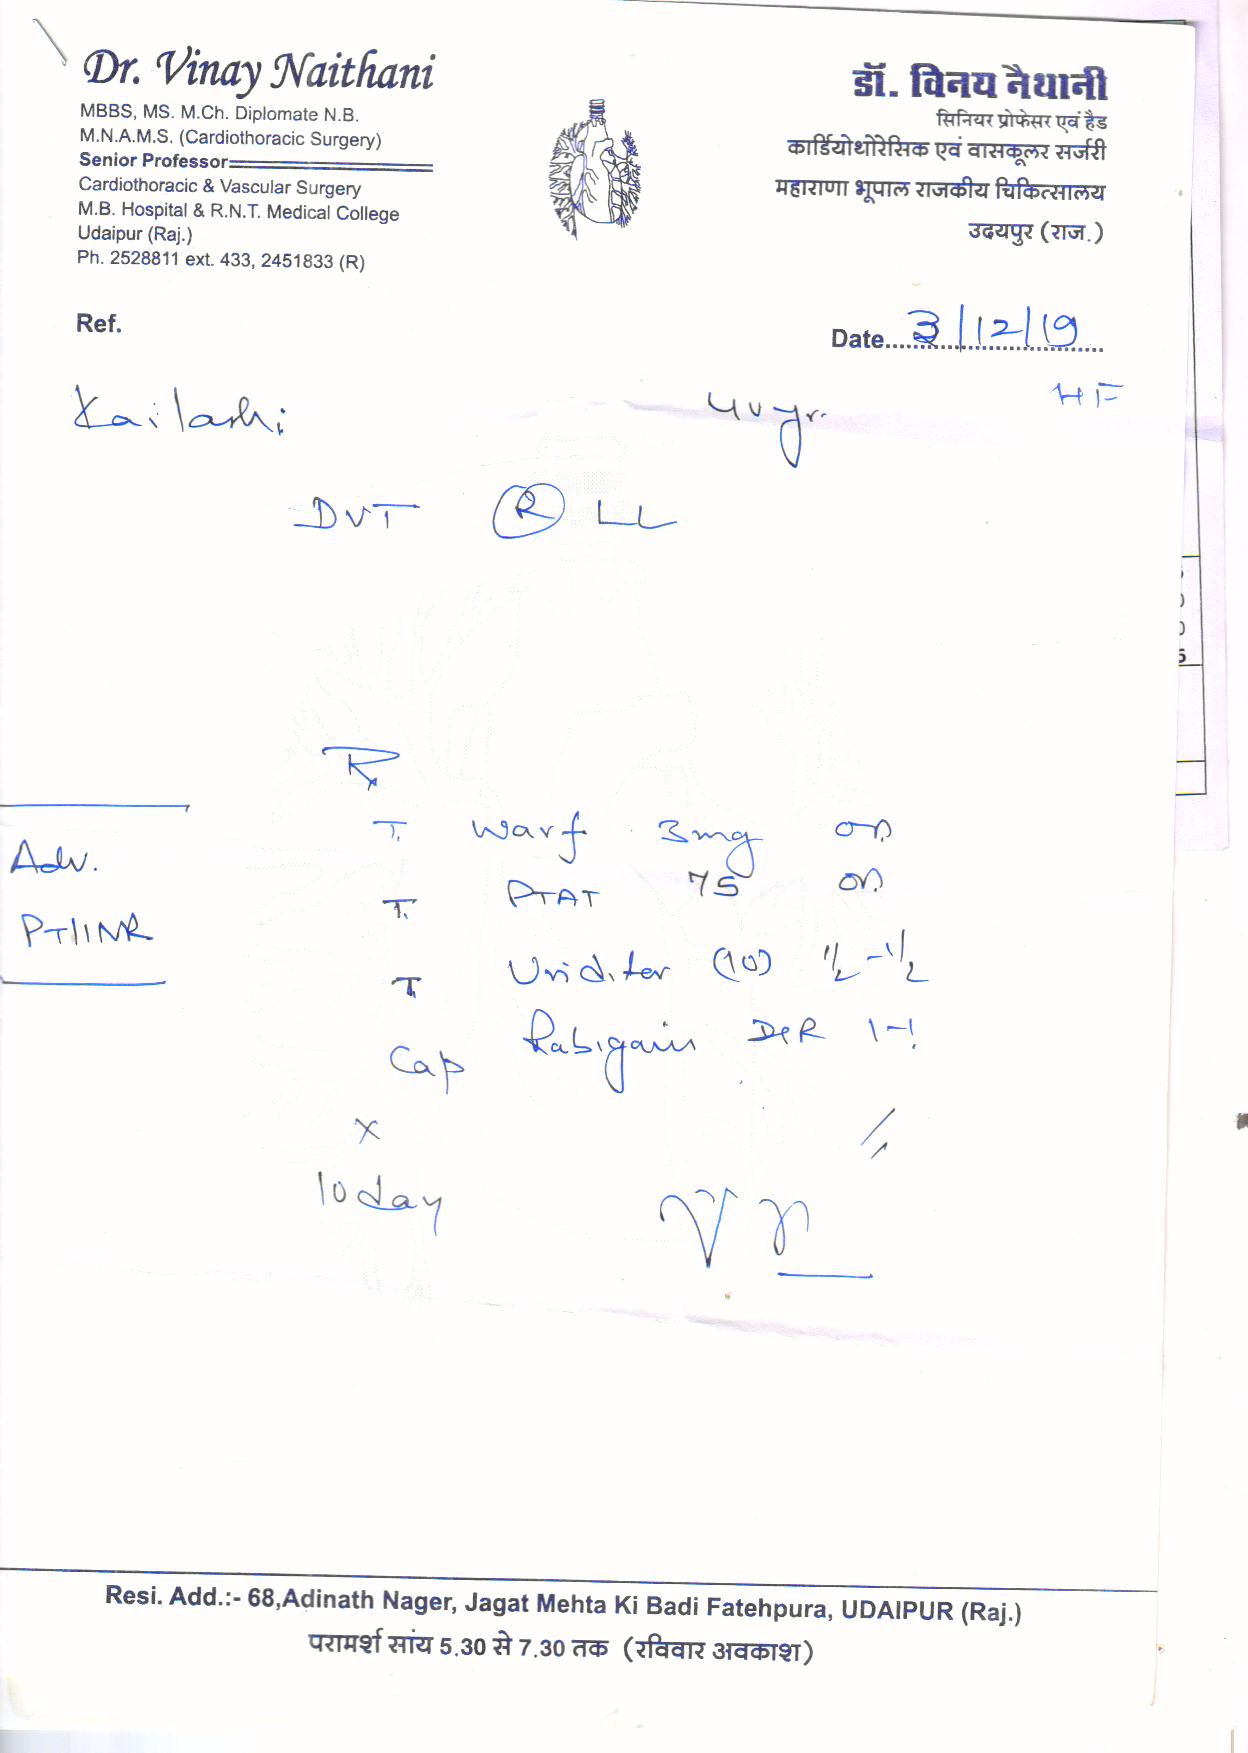 Dr. Vinay Naithani
MBBS, MS. M.Ch. Diplomate N.B.
M.N.A.M.S. (Cardiothoracic Surgery)
Senior Professor
Cardiothoracic & Vascular Surgery
M.B. Hospital & R.N.T. Medical College
Udaipur (Raj.)
Ph. 2528811 ext. 433, 2451833 (R)
डॉ. विनय नैथानी
सिनियर प्रोफेसर एवं हैड
कार्डियोथोरेसिक एवं वासकूलर सर्जरी
महाराणा भूपाल राजकीय चिकित्सालय
उदयपुर (राज.)
Ref.
Date......3/12/19
Kailashi 40 yr. HF
DVT R LL
Rx
T. Warf 3mg OD
T. PTAT 75 OD
T Uriditor (10) 1/2-1/2
Cap Rabigain DSR 1-1
x
10 day
Adv.
PT/INR
Resi. Add.:- 68,Adinath Nager, Jagat Mehta Ki Badi Fatehpura, UDAIPUR (Raj.)
परामर्श सांय 5.30 से 7.30 तक (रविवार अवकाश)